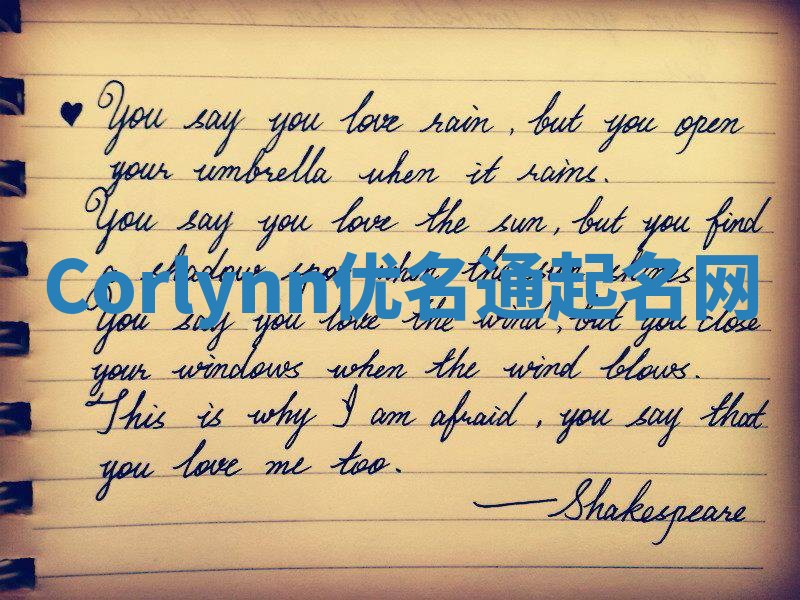 ♥ You say you love rain, but you open
your umbrella when it rains.
You say you love the sun, but you find
a shadow spot when the sun shines
Corlynn优名通起名网
You say you love the wind, but you close
your windows when the wind blows.
This is why I am afraid, you say that
you love me too.
— Shakespeare